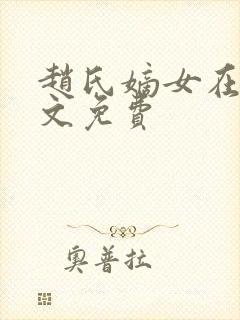 趙氏嫡女在
文免費
奧普拉